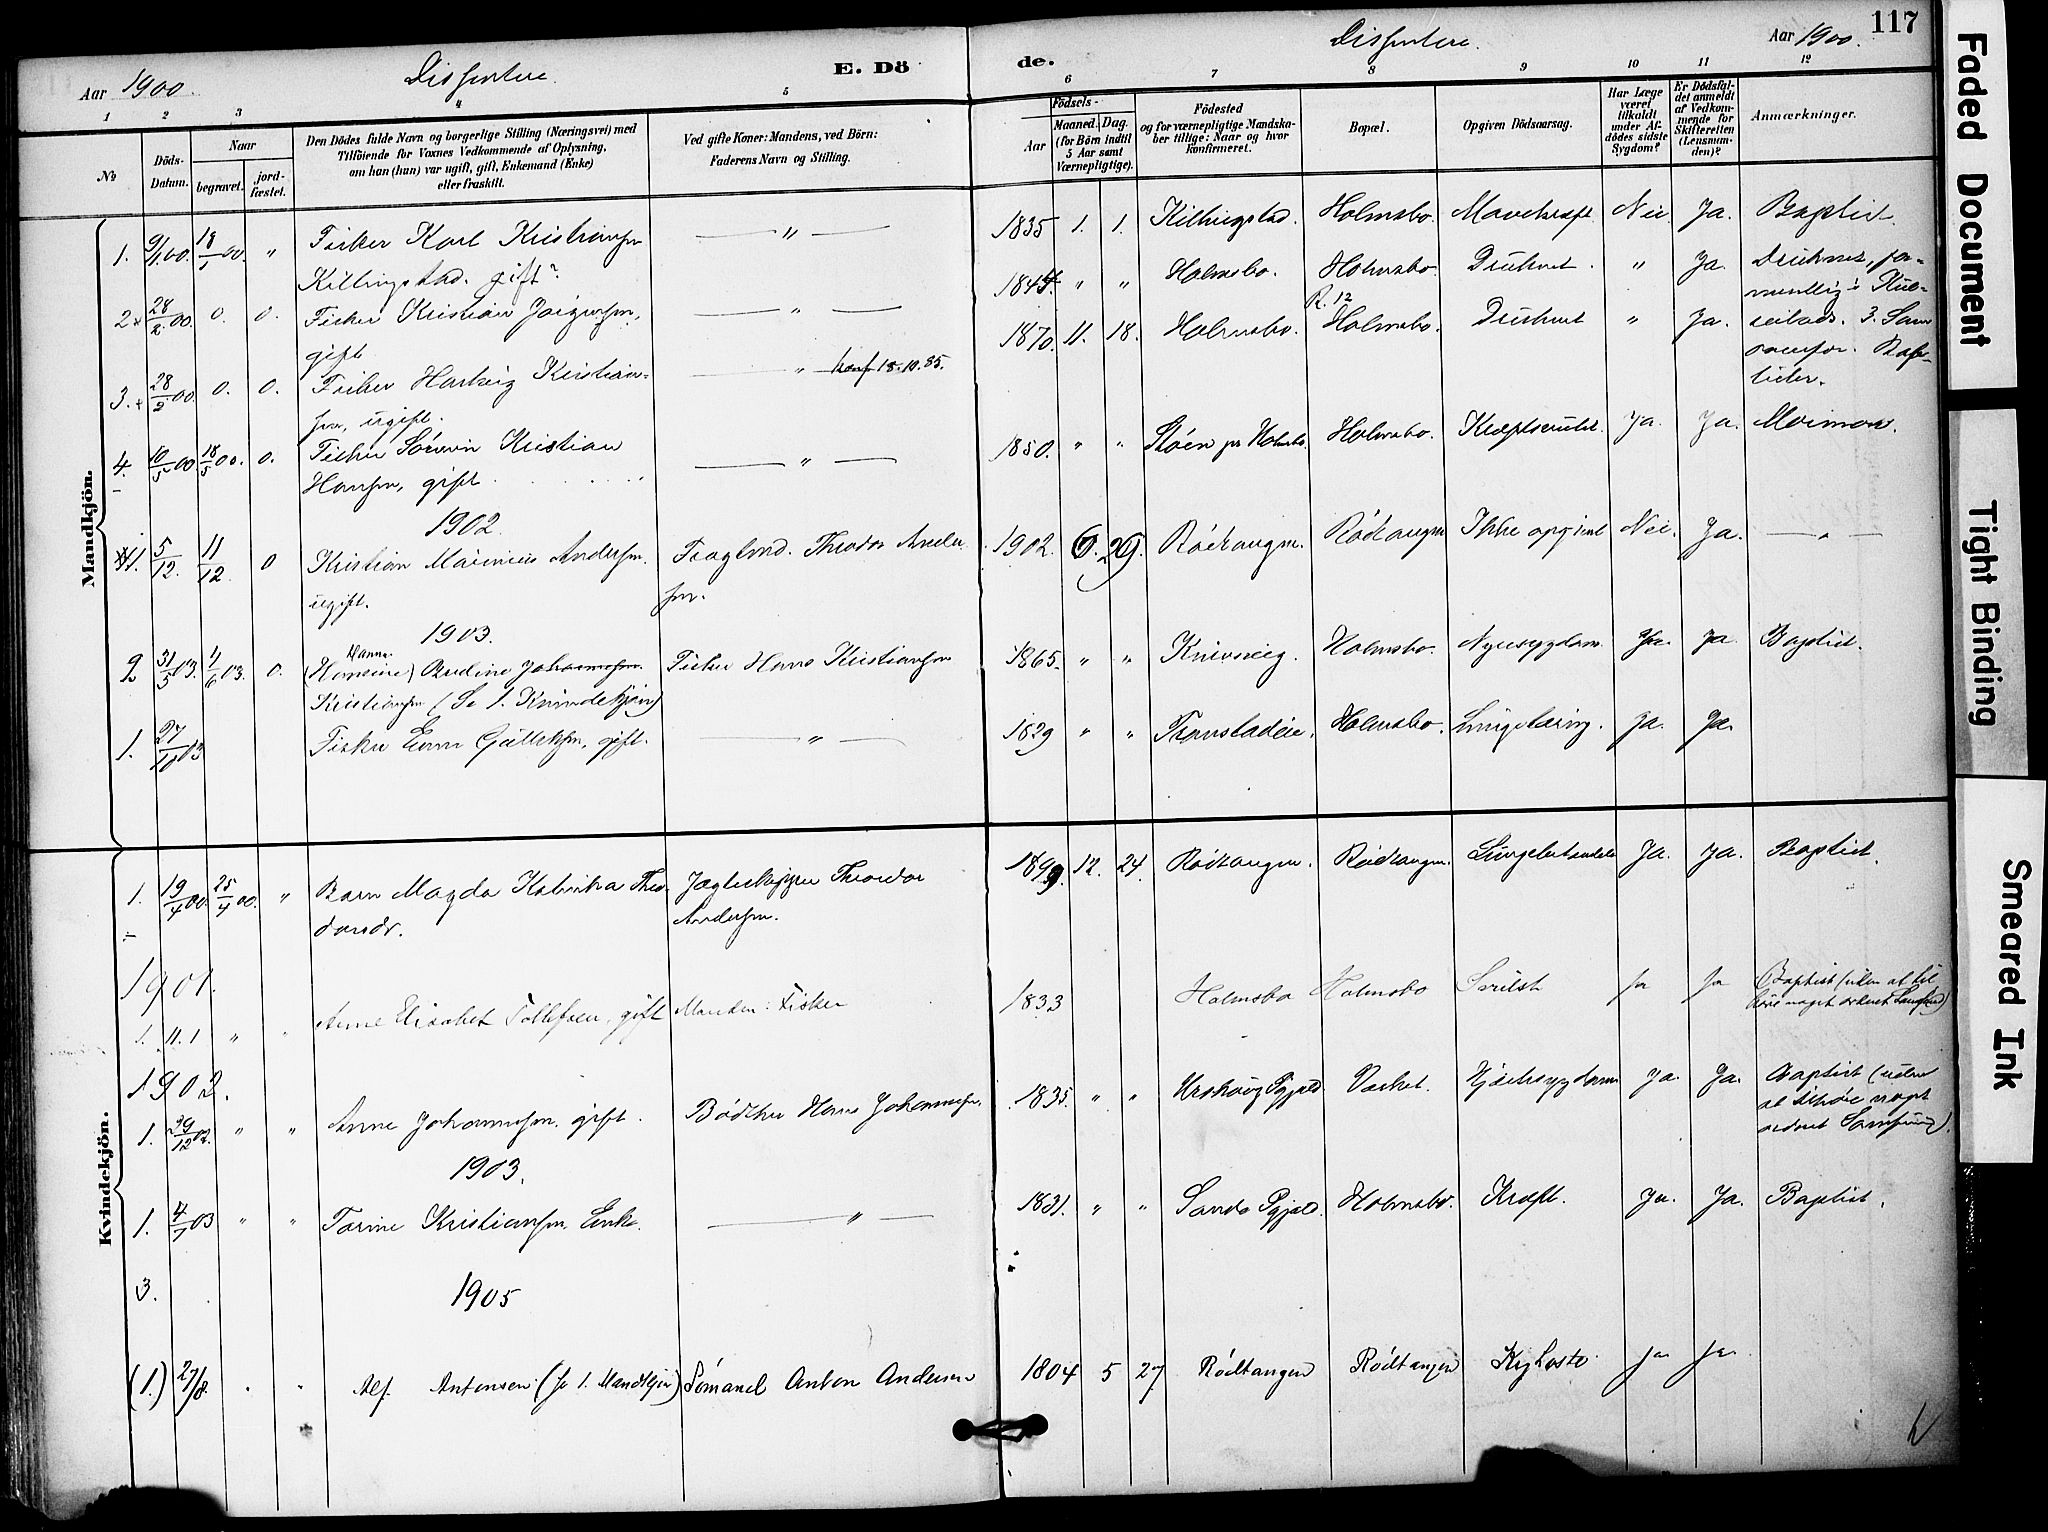 117
Aar 1900. Dissentere E. Dö de. Dissentere. Aar 1900.
1 2 3 4 5 6 7 8 9 10 11 12
No
Döds-Datum.
Naar
begravet. jord-fæstet.
Den Dödes fulde Navn og borgerlige Stilling (Næringsvei) med
Tilföiende for Voxnes Vedkommende af Oplysning,
om han (hun) var ugift, gift, Enkemand (Enke)
eller fraskilt.
Ved gifte Koner: Mandens, ved Börn:
Faderens Navn og Stilling.
Födsels-
Aar
Maaned. Dag.
(for Börn indtil
5 Aar samt
Værnepligtige).
Födested
og for værnepligtige Mandska-
ber tillige: Naar og hvor
konfirmeret.
Bopæl.
Opgiven Dödsaarsag.
Har Læge
været
tilkaldt
under Af-
dödes sidste
Sygdom?
Er Dödsfal-
det anmeldt
af Vedkom-
mende for
Skifteretten
(Lensman-
den)?
Anmærkninger.
Mandkjön.
1. 9/1 00. 18/1 00. " Fisker Karl Kristiansen — " — 1835 1. 1. Killingstad. Holmsbo. Mavekræft Nei Ja. Baptist.
Killingstad. gift?
2+ 28/2 00. 0. 0. Fisker Kristian Jørgensen, — " — 1844. " " Holmsbo. Holmsbo. Druknet. " Ja. Druknet, for-
gift
mentlig i
3.+ 28/2 00. 0. 0. Fisker Hartvig Kristian- — " konf 18.10.85. 1870. 11. 18. Holmsbo. R. 12 Holmsbo. Druknet " Ja.
sen, ugift.
4. 10/5 00 18/5 00. 0. Fisker Sørensen Kristian — " — 1850. " " Støen pr Holmsbo. Holmsbo. Ja. Ja. Mormon.
Hansen, gift.
1902.
1. 5/12. 11/12 0 Kristian Marinius Andersen. Theodor Ander- 1902. 9. 29. Rødtangen. Rødtangen Ikke opgivet Nei. Ja. — " —
ugift. sen.
1903.
2 31/5 03. 4/6 03. 0. (Hansine) Hanna Berdine Johannesen Fisker Hans Kristiansen 1865. " " Knivsvig. Holmsbo. Nyresygdom. Ja. Ja. Baptist.
Kristiansen (Se 1. Kvindekjøn)
1. 27/10 03 Fisker Even Gulliksen, gift. — " — 1829 " " Tronstadeie. Holmsbo. Ja. Ja.
Kvindekjön.
1. 19/4 00. 25/4 00. " Barn Magda Katinka Theo- Jagteskipper Theodor 1899. 12. 24. Rødtangen. Rødtangen. Ja. Ja. Baptist.
dorsdr. Andersen.
1901.
1. 11.1 " " Anne Elisabet Tollefsen, gift Manden: Fisker 1833 Holmsbo Holmsbo Svulst Ja Ja Baptist (uden at til
høre noget ordnet Samfund)
1902.
1. 29/12 02. " " Anne Johannesen. gift. Bødker Hans Johannesen. 1835. " " Urskoug Pgjeld. Væsket. Hjertesygdom Ja. Ja. Baptist (uden
at tilhøre noget
ordnet Samfund).
1903.
1. 4/1 03 " " Torine Kristiansen, Enke. — " — 1831. " " Sande Pgjeld. Holmsbo. Kræft. Ja. Ja. Baptist.
3.
1905
(1.) 27/8. " " Alf Antonsen (se 1. Mandkjøn) Sømand Anton Andersen 1804 5 27 Rødtangen Rødtangen Kighoste Ja Ja
Faded Document
Tight Binding
Smeared Ink